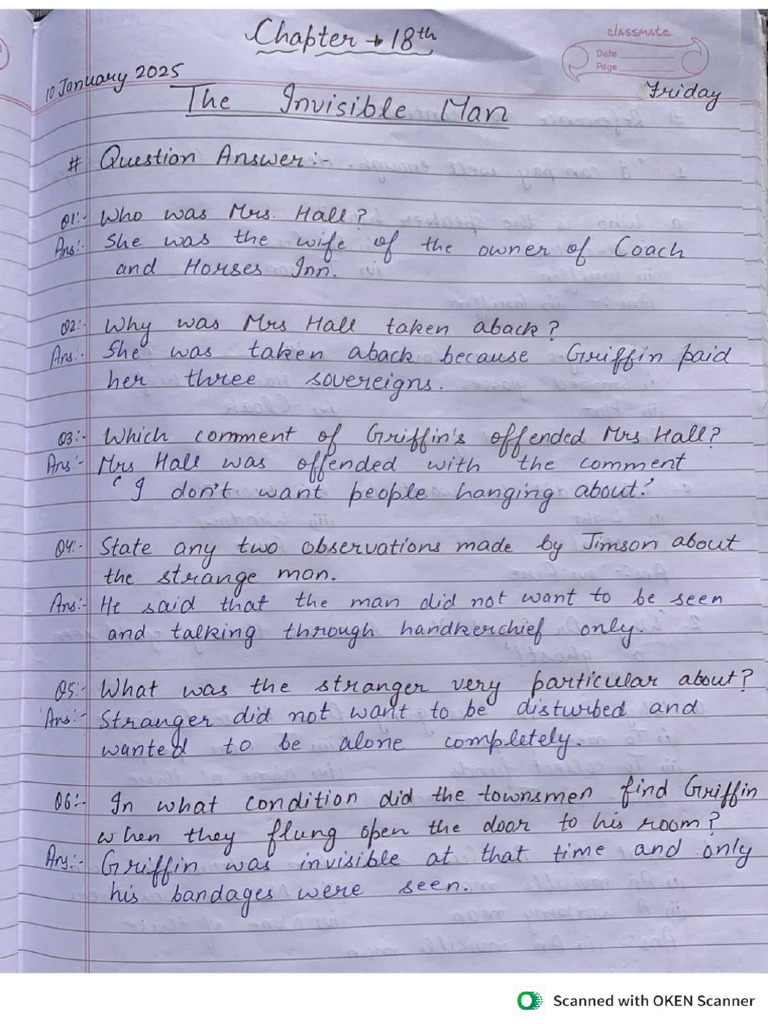 Chapter → 18th
classmate
Date
Page
10 January 2025
Friday
The Invisible Man
# Question Answer:-
Q1:- Who was Mrs. Hall?
Ans:- She was the wife of the owner of Coach
and Horses Inn.
Q2:- Why was Mrs Hall taken aback?
Ans:- She was taken aback because Griffin paid
her three sovereigns.
Q3:- Which comment of Griffin's offended Mrs Hall?
Ans:- Mrs Hall was offended with the comment
'I don't want people hanging about.'
Q4:- State any two observations made by Jimson about
the strange man.
Ans:- He said that the man did not want to be seen
and talking through handkerchief only.
Q5:- What was the stranger very particular about?
Ans:- Stranger did not want to be disturbed and
wanted to be alone completely.
Q6:- In what condition did the townsmen find Griffin
when they flung open the door to his room?
Ans:- Griffin was invisible at that time and only
his bandages were seen.
Scanned with OKEN Scanner